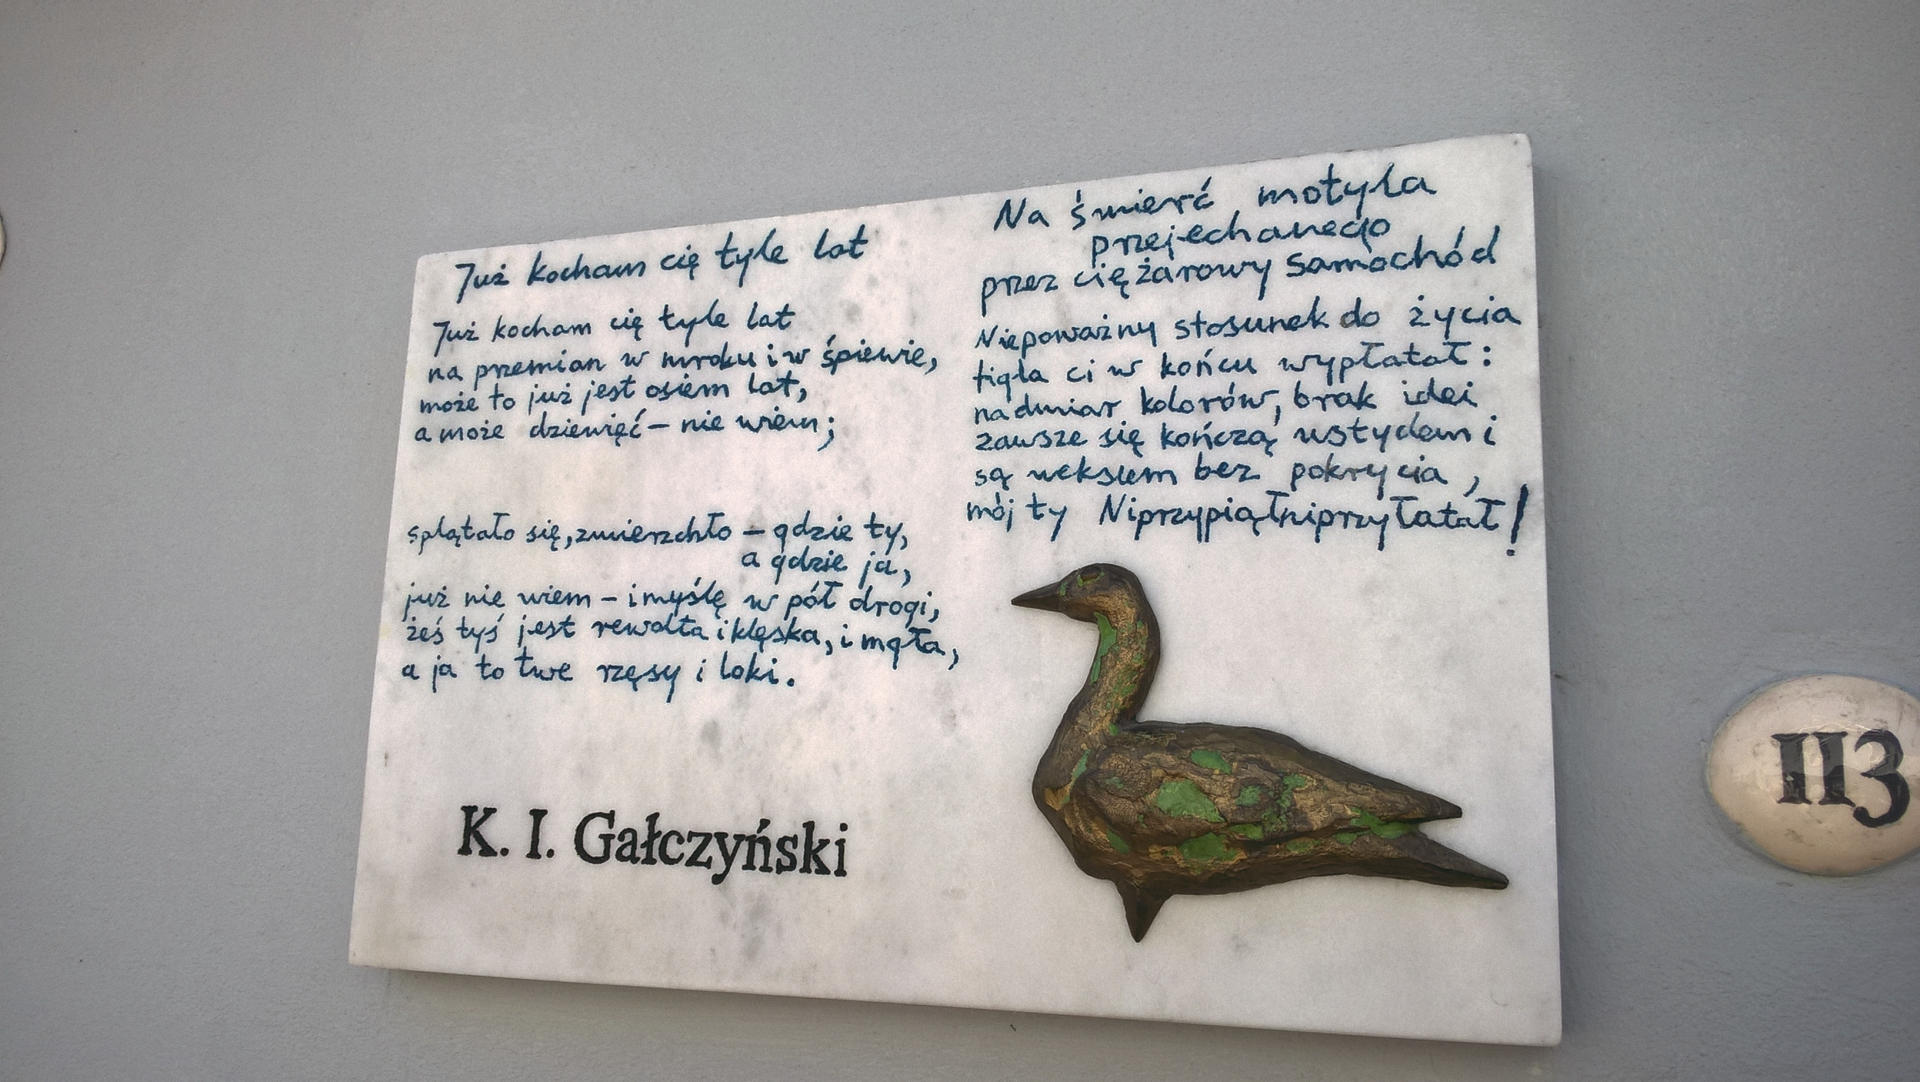 Już kocham cię tyle lat
Już kocham cię tyle lat
na przemian w mroku i w śpiewie,
może to już jest osiem lat,
a może dziewięć – nie wiem;
splątało się, zmierzchło – gdzie ty,
a gdzie ja,
już nie wiem – i myślę w pół drogi,
żeś tyś jest rewolta i klęska, i mgła,
a ja to twe rzęsy i loki.
K. I. Gałczyński
Na śmierć motyla
przejechanego
przez ciężarowy samochód
Niepoważny stosunek do życia
figla ci w końcu wypłatał:
nadmiar kolorów, brak idei
zawsze się kończą wstydem i
są wekslem bez pokrycia,
mój ty Niprzypiąłniprzyłatał!
113